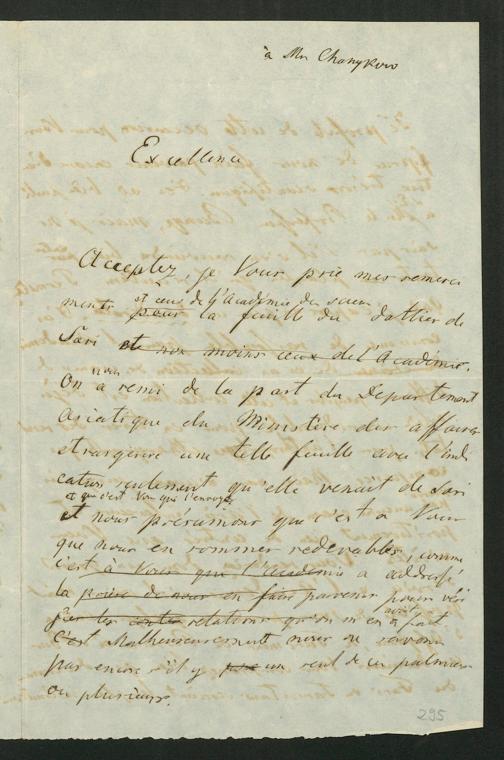 à Mr Chanykow
Excellence
Acceptez, je Vous prie mes remerci
ments et ceux de l'Académie des scien
pour la feuille du dattier de
Sari et non moins ceux de l'Académie.
On nous a remi de la part du Departement
Asiatique du Ministère des affaires
etrangeres une telle feuille avec l'indi
cation seulement qu'elle venait de Sari
et que c'est Vous qui l'envoyez
et nous présumons que c'est à Vous
que nous en sommes redevables, comme
c'est à Vous que l'académie a addressé
la prière de nous en faire parvenir pour véri
fier les relations qu'on m'en avait fait
C'est Malheureusement nous ne savons
pas encore s'il y a un seul de ces palmiers
ou plusieurs.
295